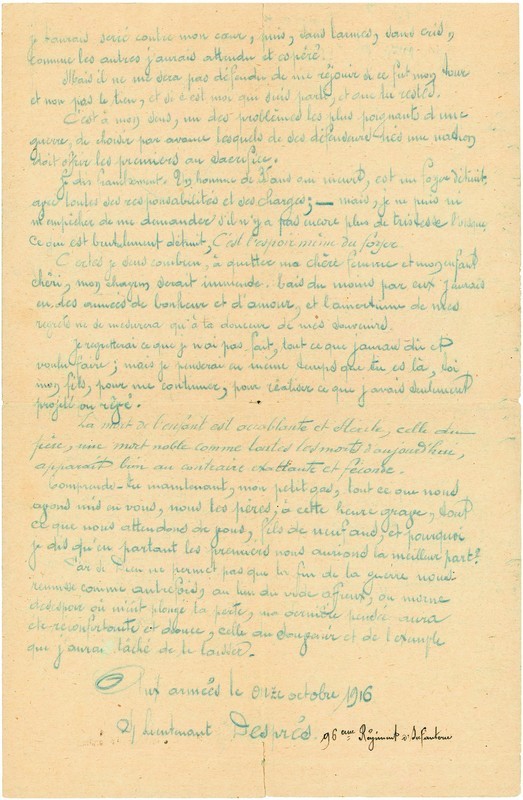 je t'aurais serré contre mon cœur, puis, sans larmes, sans cris,
comme les autres j'aurais attendu et espéré.
Mais il ne me sera pas défendu de me réjouir si ce fut mon tour
et non pas le tien, et si c'est moi qui suis parti, et que tu restes.
C'est à mon sens, un des problèmes les plus poignants d'une
guerre, de choisir par avance lesquels de ses défenseurs nés une nation
doit offrir les premiers au sacrifice.
Je dis franchement. Un homme de ans qui meurt, est un foyer détruit,
avec toutes ses responsabilités et ses charges; — mais, je ne puis ni
m'empêcher de me demander s'il n'y a pas encore plus de tristesse lorsque
ce qui est brutalement détruit, C'est l'espoir même du foyer
Certes je sens combien, à quitter ma chère femme et mon enfant
chéri, mon chagrin serait immense. Mais du moins par eux j'aurais
eu des années de bonheur et d'amour, et l'amertume de mes
regrets ne se mesurera qu'à la douceur de mes souvenirs.
je regretterai ce que je n'ai pas fait, tout ce que j'aurais dû et
voulu faire; mais je penserai en même temps que tu es là, toi
mon fils, pour me continuer, pour réaliser ce que j'avais seulement
projeté ou rêvé.
La mort de l'enfant est accablante et stérile, celle du
père, une mort noble comme toutes les morts d'aujourd'hui,
apparaît bien au contraire exaltante et féconde.
Comprends-tu maintenant, mon petit gas, tout ce que nous
avons mis en vous, nous les pères; à cette heure grave, tout
ce que nous attendons de vous, fils de neuf ans, et pourquoi
je dis qu'en partant les premiers nous aurions la meilleur part?
Car si Dieu ne permet pas que la fin de la guerre nous
réunisse comme autrefois, au lieu du vide affreux, ou morne
désespoir où m'eût plongé ta perte, ma dernière pensée aura
été réconfortante et douce, celle du souvenir et de l'exemple
que j'aurai tâché de te laisser.
Aux armées le onze octobre 1916
Lieutenant Després. 96 eme Régiment d'Infanterie